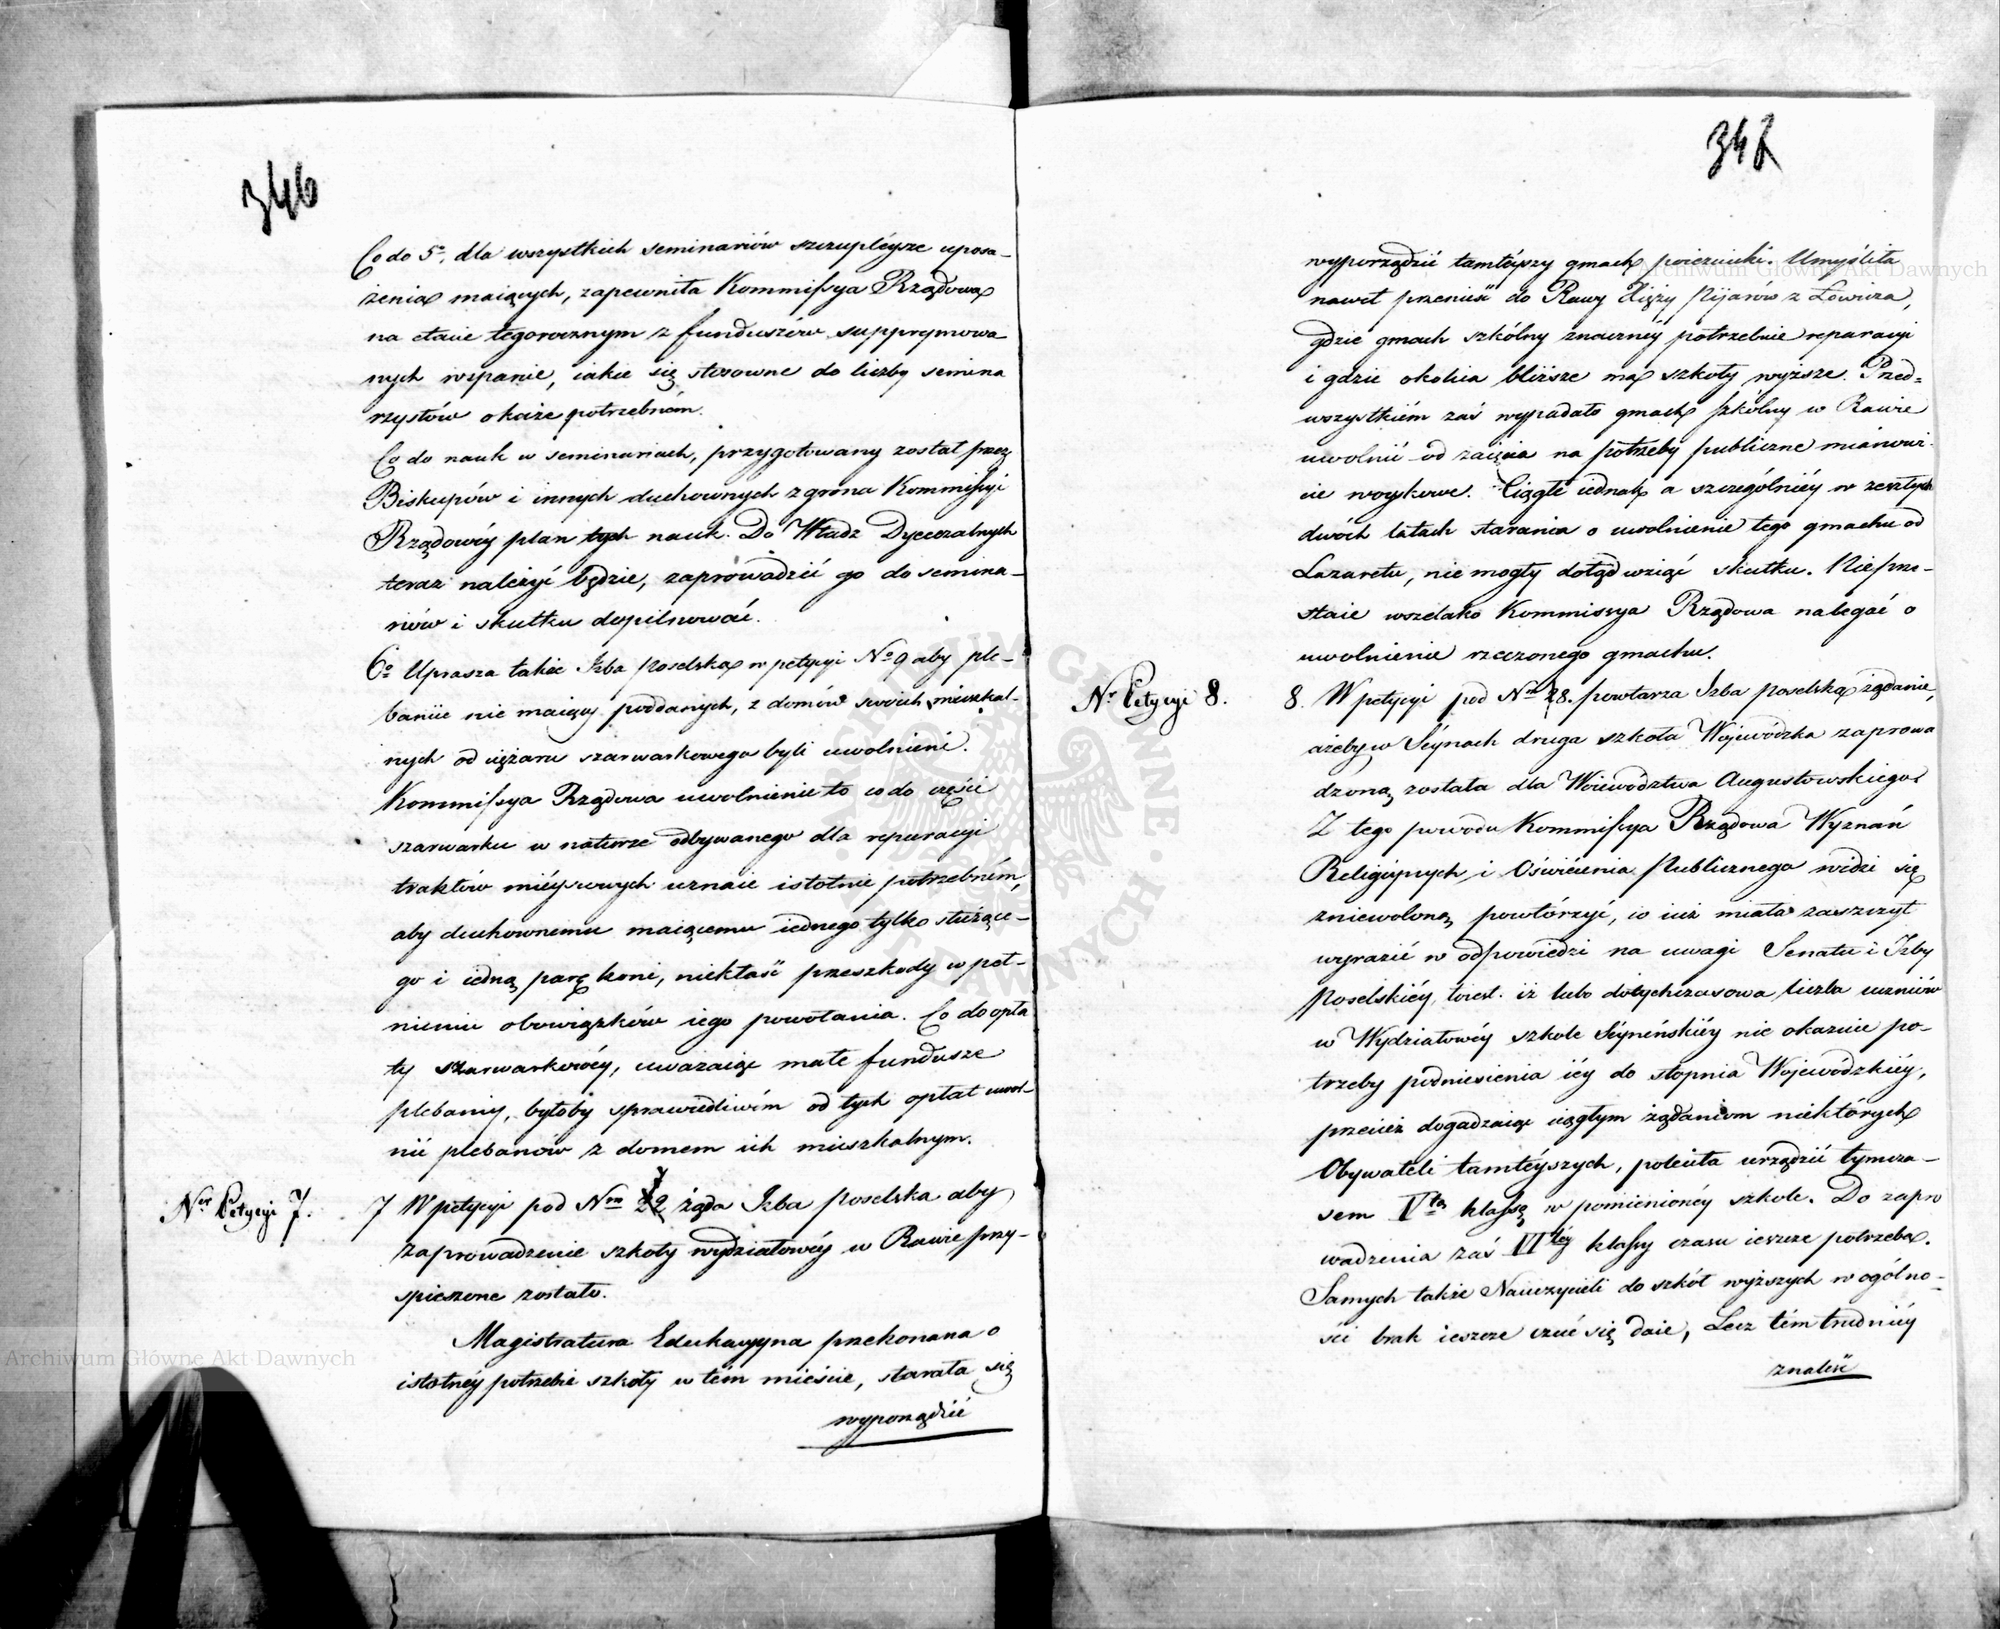 346
Co do 5º, dla wszystkich seminariów szczupléysze uposa-
żenia maiących, zapewniła Kommissya Rządowa
na etacie tegorocznym z funduszów supprymowa
nych wsparcie, iakie się stosowne do liczby semina
rzystów okaże potrzebném.
Co do nauk w seminariach, przygotowany został przez
Biskupów i innych duchownych z grona Kommissyi
Rządowéy plan tych nauk. Do Władz Dyecezalnych
teraz należyć będzie, zaprowadzić go do semina-
riów i skutku dopilnować.
6º Uprasza także Izba Poselska w petycyi Nº 9 aby ple-
banii nie maiący poddanych, z domów swoich mieszkal-
nych od ciężaru szarwarkowego byli uwolnieni.
Kommissya Rządowa uwolnienie to co do części
szarwarku w naturze odbywanego dla reparacyi
traktów mieyscowych uznaie istotnie potrzebném,
aby duchownemu maiącemu iednego tylko służące-
go i iedną parę koni, niekłaść przeszkody w peł-
nieniu obowiązków iego powołania. Co do opła
ty szarwarkowéy, uważaiąc małe fundusze
plebanij, byłoby sprawiedliwém od tych opłat uwol-
nić plebanów z domem ich mieszkalnym.
Nor Petycyi 7.
7 W petycyi pod Nm 22 żąda Izba Poselska aby
zaprowadzenie szkoły wydziałowéy w Rawie przy-
spieszone zostało.
Magistratura Edukacyyna przekonana o
istotnéy potrzebie szkoły w tém mieście, starała się
wyporządzić
347
wyporządzić tamtéyszy gmach poiezuicki. Umyśliła
nawet przenieść do Rawy Xięży Pijarów z Łowicza,
gdzie gmach szkólny znacznéy potrzebuie reparacyi
i gdzie okolica bliższe ma szkoły wyższe. Przed=
wszystkiém zaś wypadało gmach szkólny w Rawie
uwolnić od zaięcia na potrzeby publiczne mianowi-
cie woyskowe. Ciągłe iednak a szczególniéy w zeszłych
dwóch latach starania o uwolnienie tego gmachu od
Lazaretu, nie mogły dotąd wziąć skutku. Nieprze-
staie wszelako Kommissya Rządowa nalegać o
uwolnienie rzeczonego gmachu.
Nr Petycyi 8.
8. W petycyi pod Nm 28. powtarza Izba Poselska żądanie,
ażeby w Séynach druga szkoła Wojewódzka zaprowa
dzoną została dla Województwa Augustowskiego.
Z tego powodu Kommissya Rządowa Wyznań
Religiynych i Oświécenia Publicznego widzi się
zniewoloną powtórzyć, co iuż miała zaszczyt
wyrazić w odpowiedzi na uwagi Senatu i Izby
Poselskiéy, to iest. iż lubo dotychczasowa liczba uczniów
w Wydziałowéy szkole Séyneńskiéy nie okazuie po-
trzeby podniesienia iéy do stopnia Wojewódzkiéy,
przecież dogadzaiąc ciągłym żądaniom niektórych
Obywateli tamtéyszych, poleciła urządzić tymcza-
sem Vtą klassę w pomienionéy szkole. Do zapro
wadzenia zaś VItéy klassy czasu ieszcze potrzeba.
Samych także Nauczycieli do szkół wyższych w ogólno-
ści brak ieszcze czuć się daie, Lecz tém trudniéy
znaleść
Archiwum Główne Akt Dawnych
Archiwum Główne Akt Dawnych